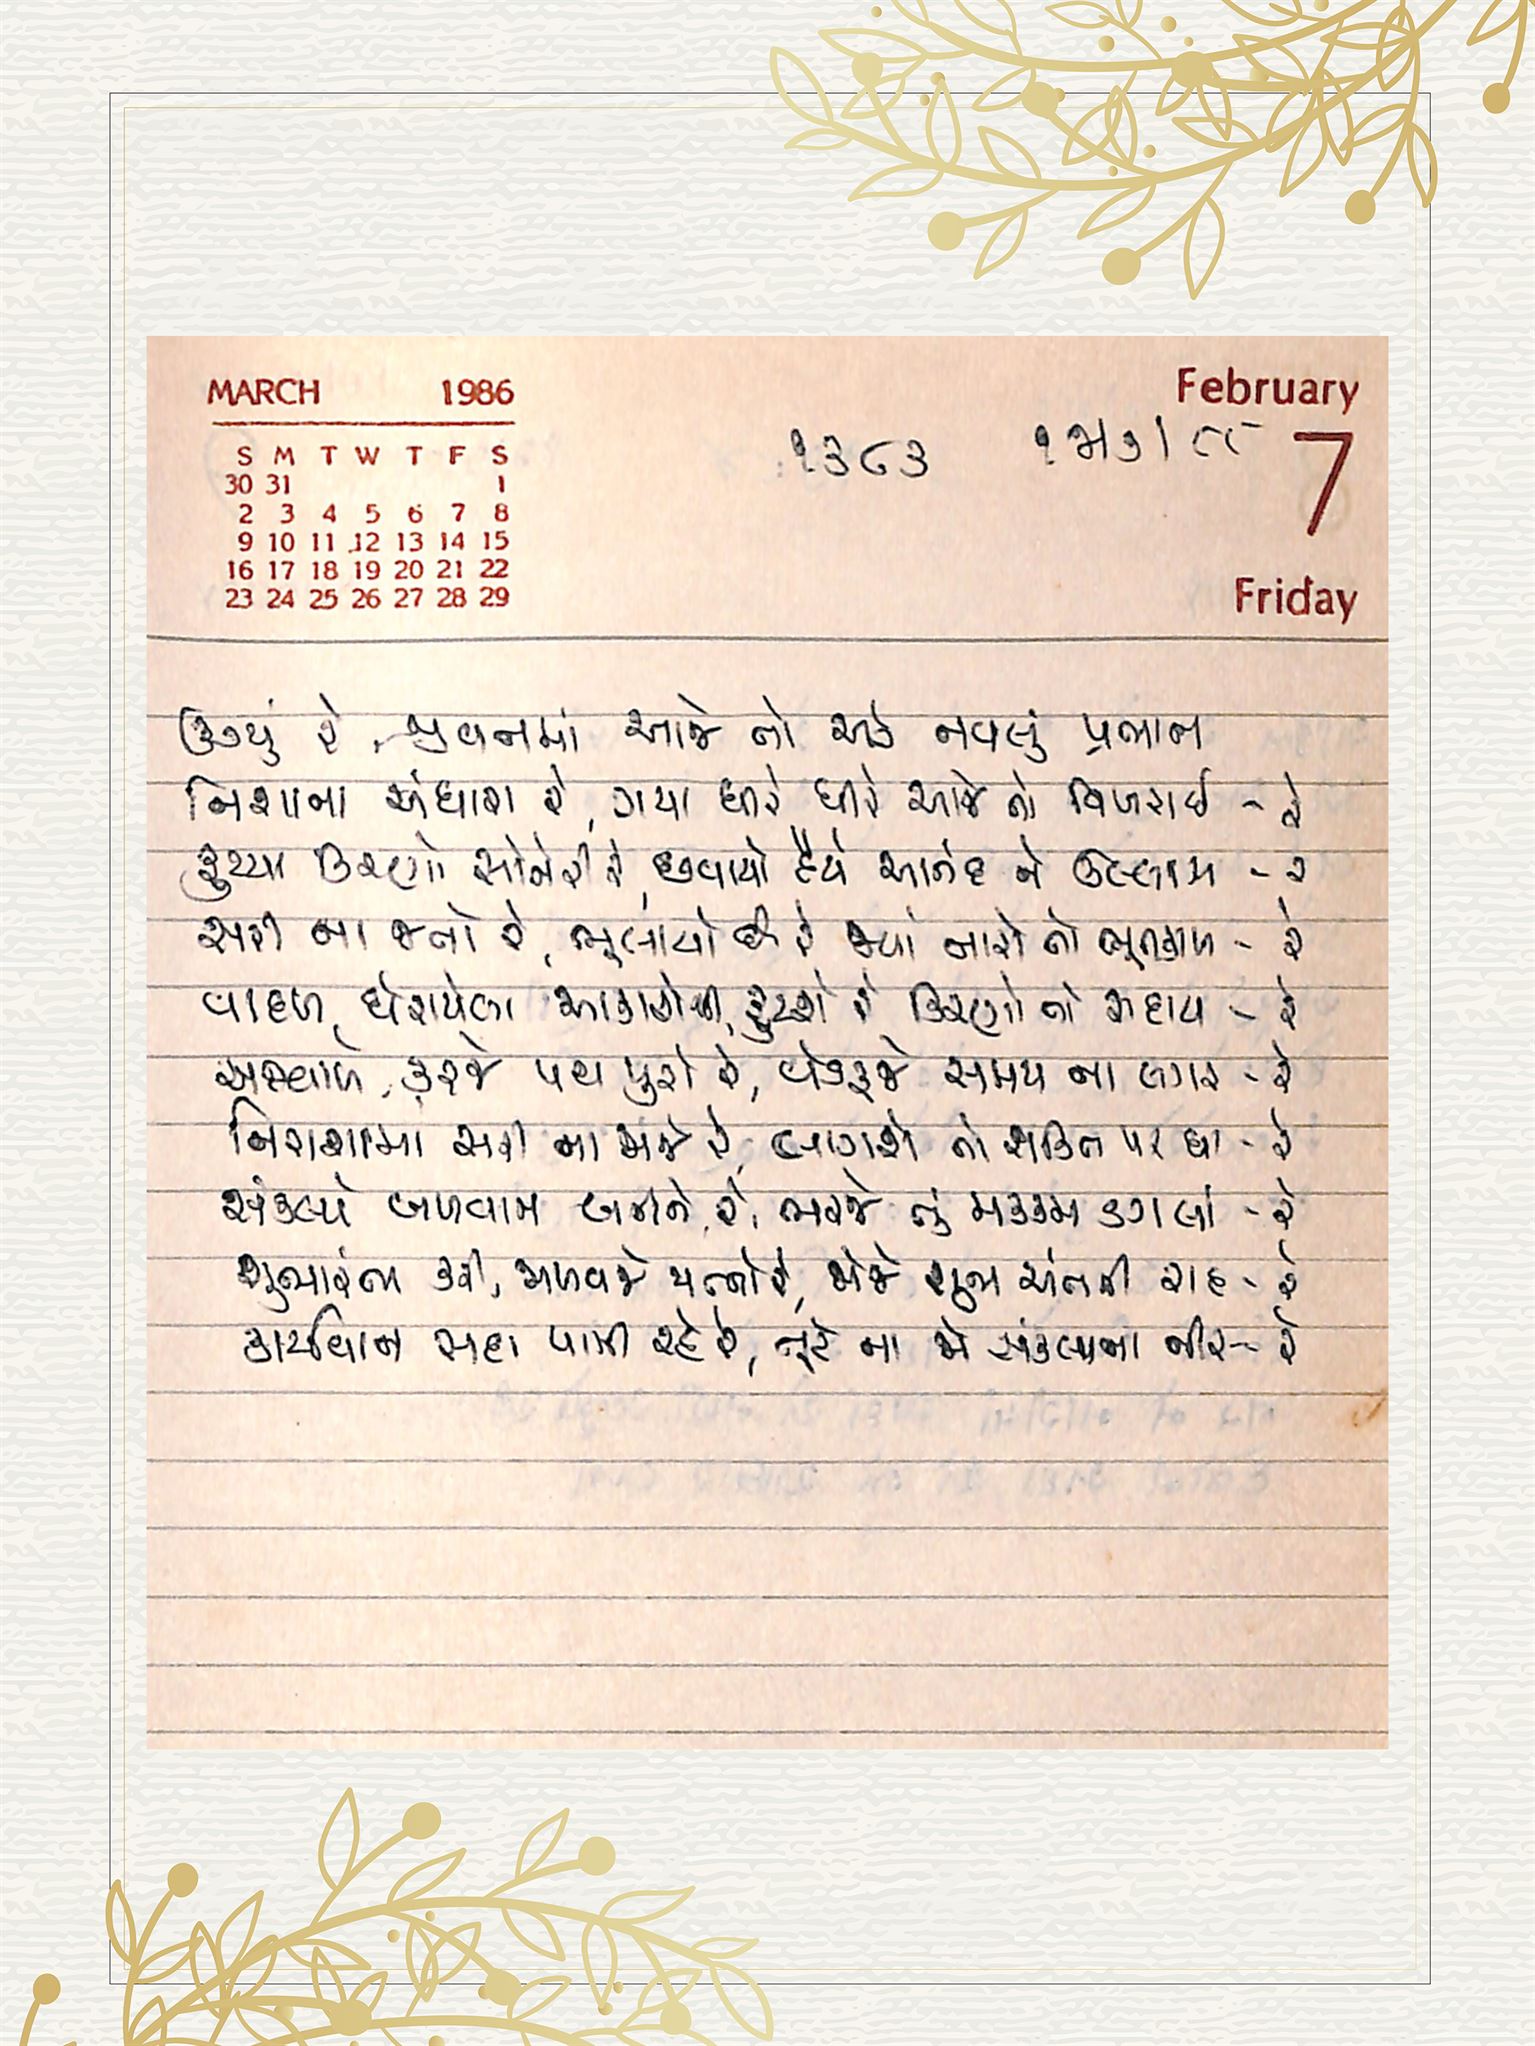 MARCH 1986
S M T W T F S
30 31 1
2 3 4 5 6 7 8
9 10 11 12 13 14 15
16 17 18 19 20 21 22
23 24 25 26 27 28 29
February
7
Friday
૧૩૮૩
ઉગ્યું રે, જીવનમાં આજે તો એક નવલું પ્રભાત
નિશાના અંધારા રે, ગયા ધીરે ધીરે આજે તો વિખરાઈ - રે
ફુટયા કિરણો સોનેરી રે, છવાયો હૈયે આનંદ ને ઉલ્લાસ - રે
સરી ના જતો રે, ભૂલાયો છે રે જ્યાં તારો તો ભૂતકાળ - રે
વાદળ ઘેરાયેલા આકાશેથી, ફુટશે રે કિરણો તો સદાય - રે
કરજે પથ પુરો રે, વેડફજે સમય ના લગાર - રે
નિરાશામાં સરી ના જાજે રે, લાગશે તો શક્તિ પર ઘા - રે
સંકલ્પે બળવાન બનીને રે, ભરજે તું મક્કમ ડગલાં - રે
શુભારંભ કરી, મેળવજે યત્નો રે, જોજે શુભ અંતની રાહ - રે
કાર્યવાન સદા પામી રહે રે, તૂટે ના જો સંકલ્પના તીર - રે